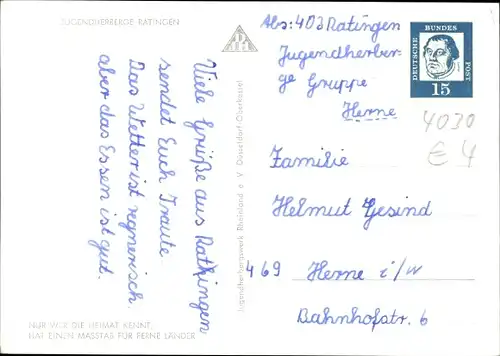 JUGENDHERBERGE RATINGEN
Viele Grüße aus Rathingen
sendet Euch Traute
Das Wetter ist regnerisch.
aber das Essen ist gut.
NUR WER DIE HEIMAT KENNT,
HAT EINEN MASSTAB FÜR FERNE LÄNDER
Jugendherbergswerk Rheinland e. V. Düsseldorf-Oberkassel
Abs: 403 Ratingen
Jugendherber-
ge Gruppe
Herne
DEUTSCHE
BUNDES
POST
15
4030
€ 4
Familie
Helmut Gesind
469 Herne i/W
Bahnhofstr. 6